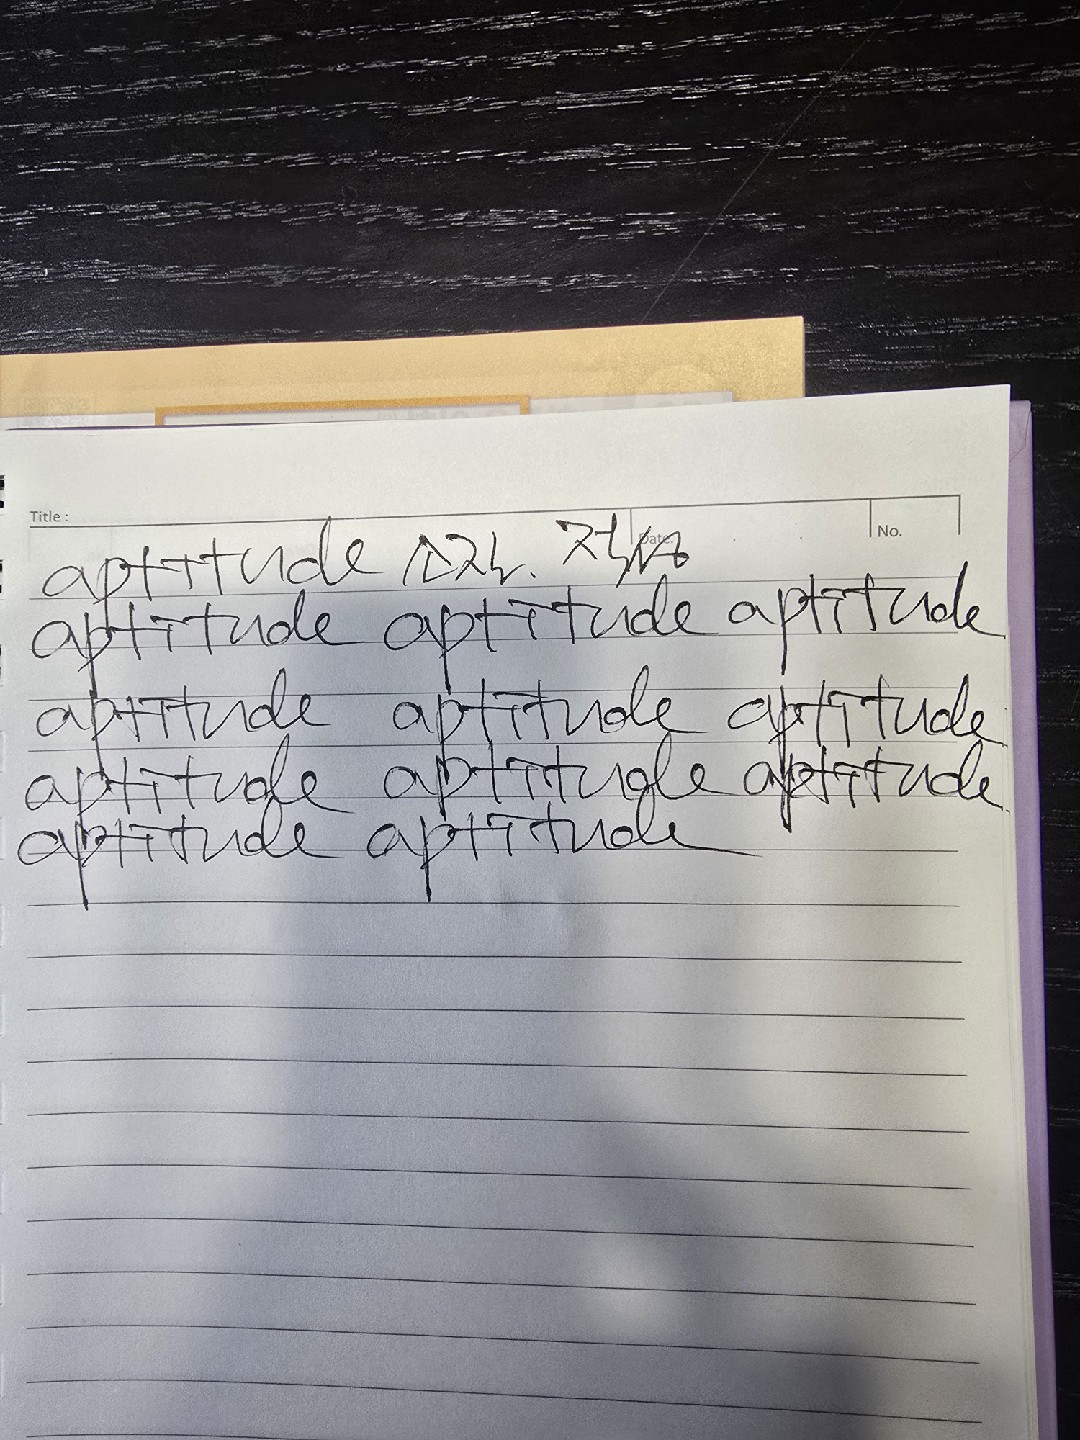 Title :
Date.
No.
aptitude 소질. 적성
aptitude aptitude aptitude
aptitude aptitude aptitude
aptitude aptitude aptitude
aptitude aptitude